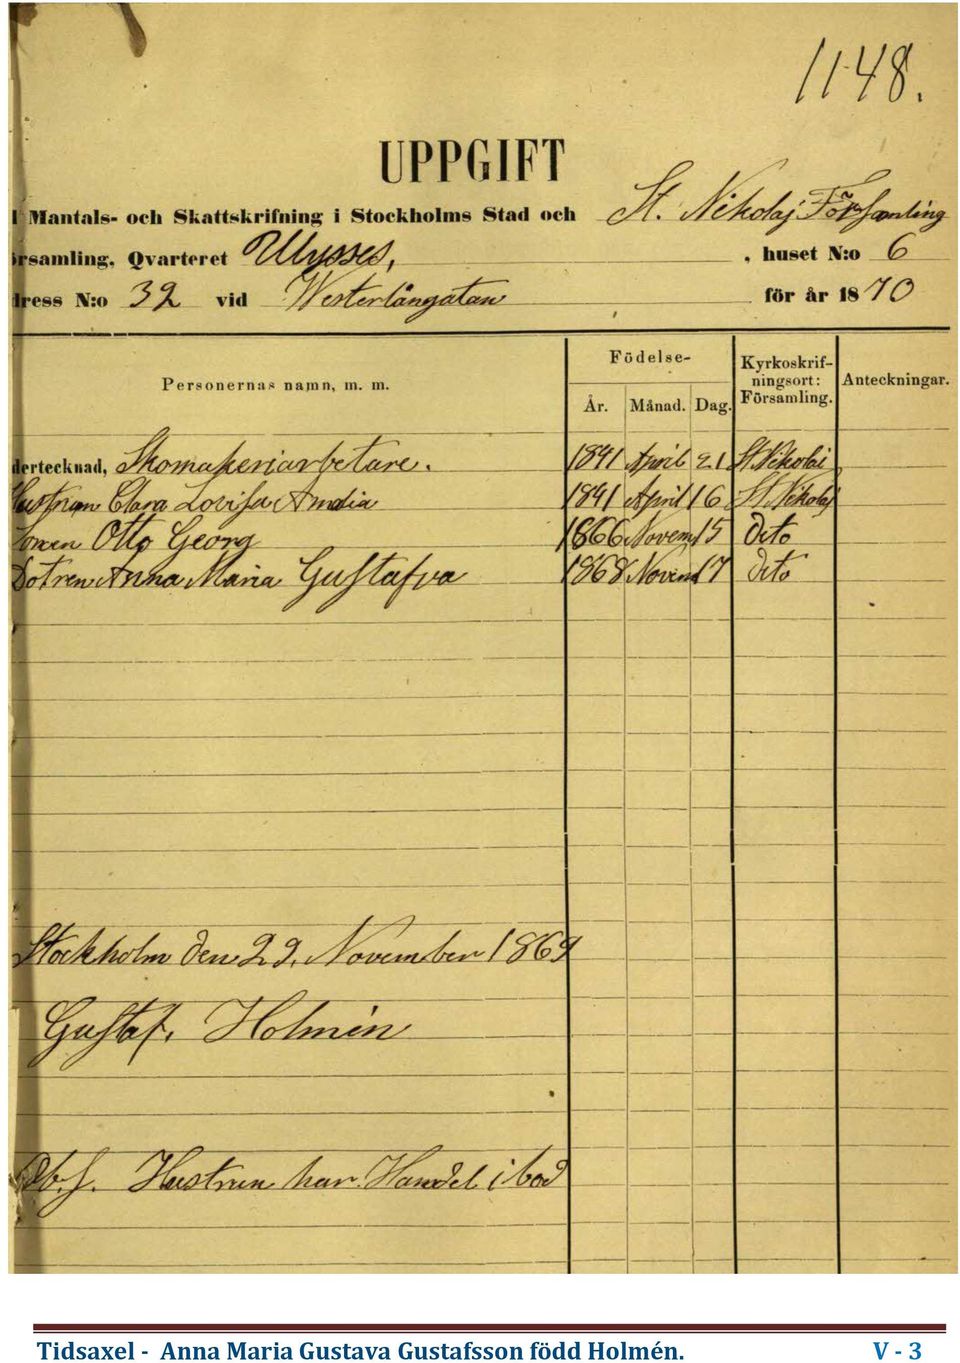 1148.
UPPGIFT
Mantals- och Skattskrifning i Stockholms Stad och St. Nikolaj Församling
rsamling, Qvarteret Ulysses, , huset N:o 6
ress N:o 32 vid Westerlångatan för år 1870
Personernas namn, m. m. Födelse- År. Månad. Dag. Kyrkoskrif-ningsort: Församling. Anteckningar.
dertecknad, Skomakeriarbetare. 1841 April 21 St Nikolai
Hustrun Clara Lovisa Amalia 1841 April 16 St Nikolaj
Sonen Otto Georg 1866 Novem 15 Dito
Dotren Anna Maria Gustafva 1868 Novem 17 Dito
Stockholm den 29, November 1869
Gustaf. Holmén
Obs. Hustrun har Handel i bod
Tidsaxel - Anna Maria Gustava Gustafsson född Holmén. V - 3